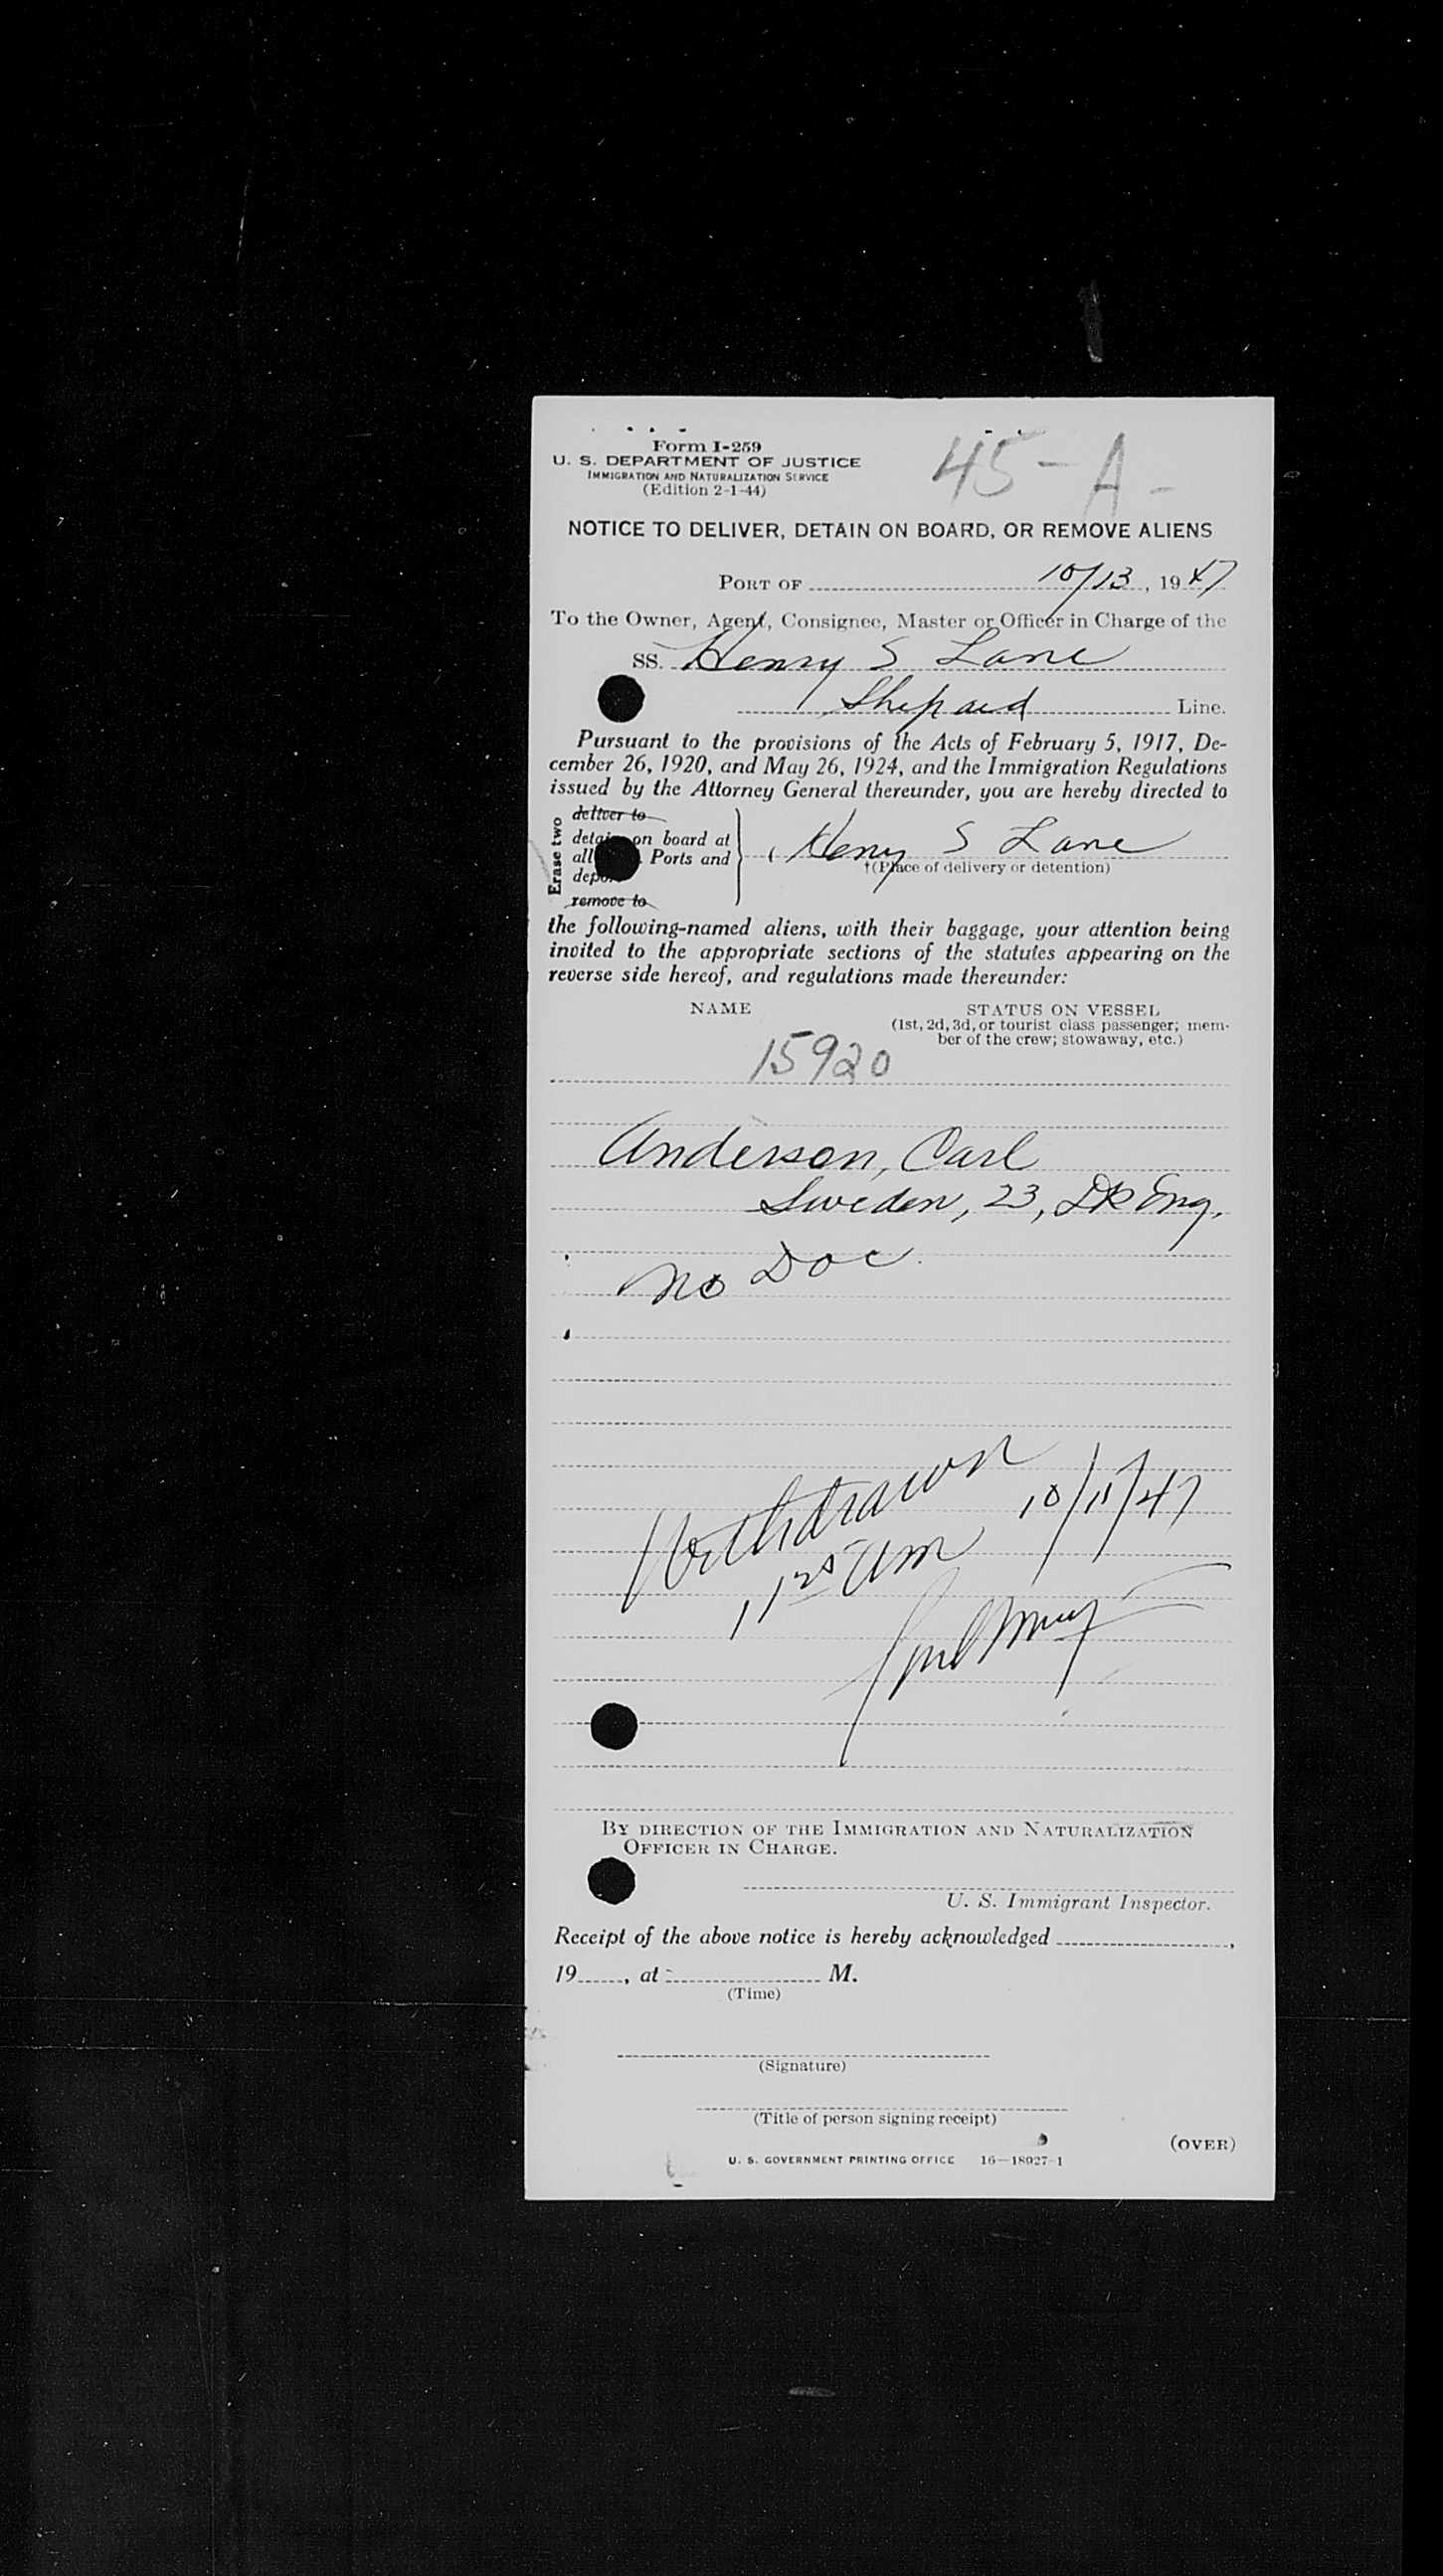 Form I-259
U. S. DEPARTMENT OF JUSTICE
IMMIGRATION AND NATURALIZATION SERVICE
(Edition 2-1-44)
45-A-
NOTICE TO DELIVER, DETAIN ON BOARD, OR REMOVE ALIENS
PORT OF 10/13, 1947
To the Owner, Agent, Consignee, Master or Officer in Charge of the
SS. Henry S Lane
Shepard Line.
Pursuant to the provisions of the Acts of February 5, 1917, De-
cember 26, 1920, and May 26, 1924, and the Immigration Regulations
issued by the Attorney General thereunder, you are hereby directed to
Erase two
deliver to
on board at
all Ports and
remove to
Henry S Lane
†(Place of delivery or detention)
the following-named aliens, with their baggage, your attention being
invited to the appropriate sections of the statutes appearing on the
reverse side hereof, and regulations made thereunder:
NAME
STATUS ON VESSEL
(1st, 2d, 3d, or tourist class passenger; mem-
ber of the crew; stowaway, etc.)
15920
Anderson, Carl
Sweden, 23, Dk Eng.
No Doc.
Withdrawn 10/15/47
AM
BY DIRECTION OF THE IMMIGRATION AND NATURALIZATION
OFFICER IN CHARGE.
U. S. Immigrant Inspector.
Receipt of the above notice is hereby acknowledged ,
19 , at M.
(Time)
(Signature)
(Title of person signing receipt)
(OVER)
U. S. GOVERNMENT PRINTING OFFICE 16—18027-1